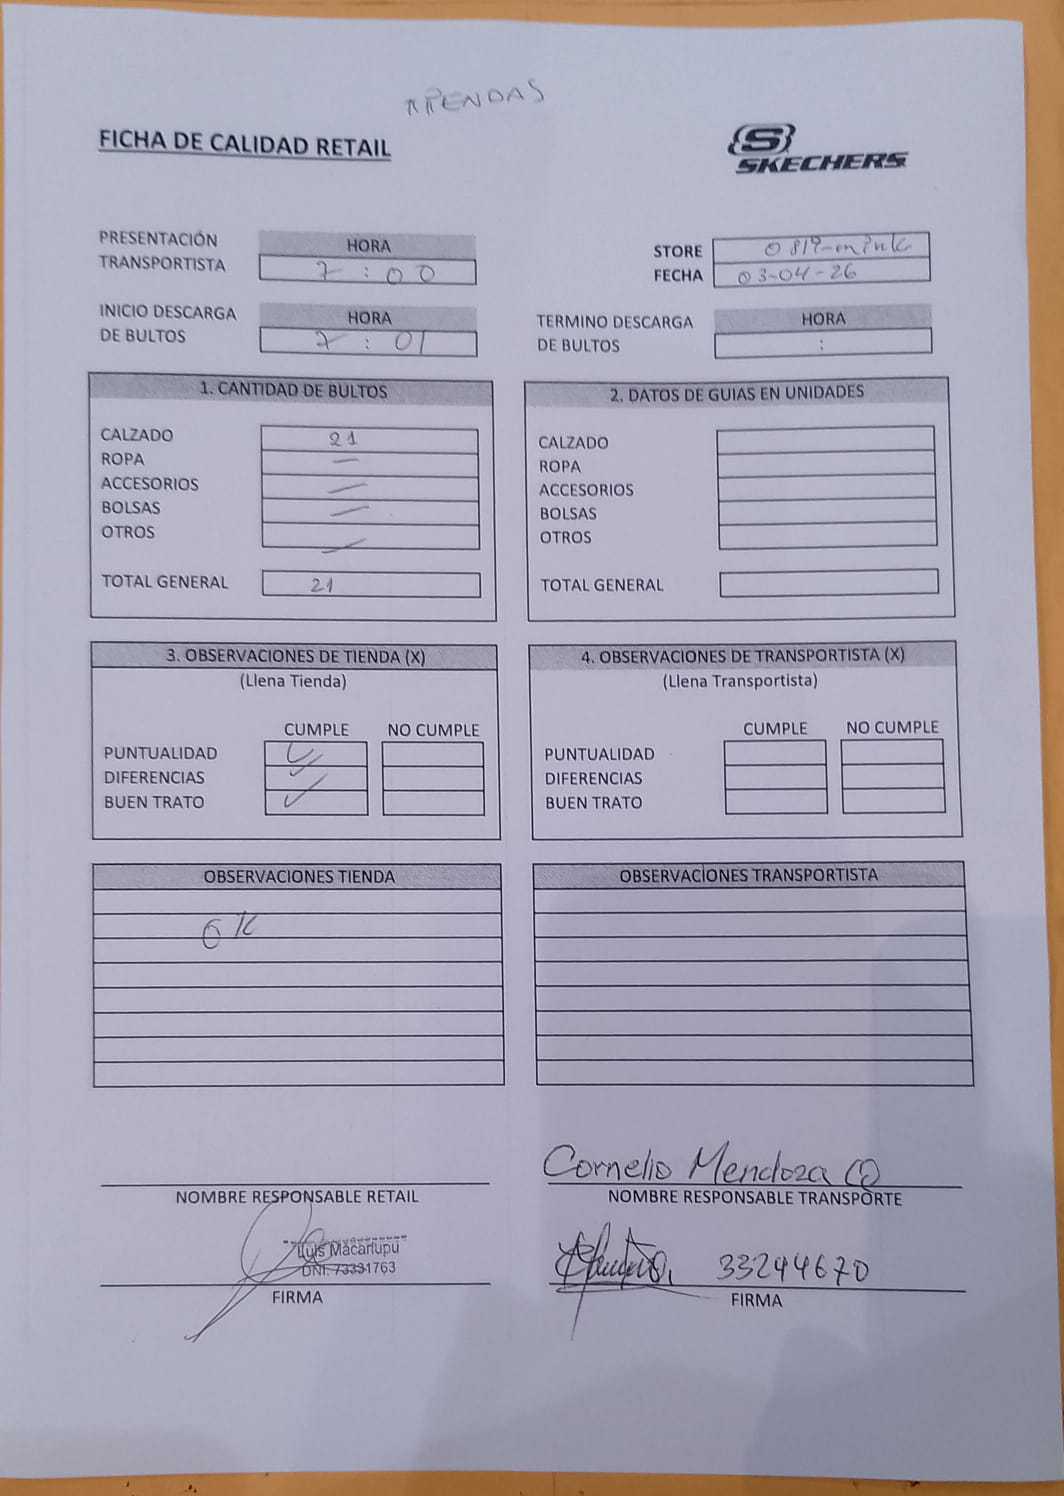 FICHA DE CALIDAD RETAIL
SKECHERS
PRESENTACIÓN TRANSPORTISTA
HORA
7 : 00
STORE
FECHA 03-04-26
INICIO DESCARGA DE BULTOS
HORA
7 : 01
TERMINO DESCARGA DE BULTOS
HORA
:
1. CANTIDAD DE BULTOS
CALZADO 21
ROPA —
ACCESORIOS —
BOLSAS —
OTROS —
TOTAL GENERAL 21
2. DATOS DE GUIAS EN UNIDADES
CALZADO
ROPA
ACCESORIOS
BOLSAS
OTROS
TOTAL GENERAL
3. OBSERVACIONES DE TIENDA (X)
(Llena Tienda)
CUMPLE NO CUMPLE
PUNTUALIDAD ✓
DIFERENCIAS ✓
BUEN TRATO ✓
4. OBSERVACIONES DE TRANSPORTISTA (X)
(Llena Transportista)
CUMPLE NO CUMPLE
PUNTUALIDAD
DIFERENCIAS
BUEN TRATO
OBSERVACIONES TIENDA
OK
OBSERVACIONES TRANSPORTISTA
NOMBRE RESPONSABLE RETAIL
Luis Macarlupu
DNI. 73331763
FIRMA
Cornelio Mendoza
NOMBRE RESPONSABLE TRANSPORTE
33244670
FIRMA